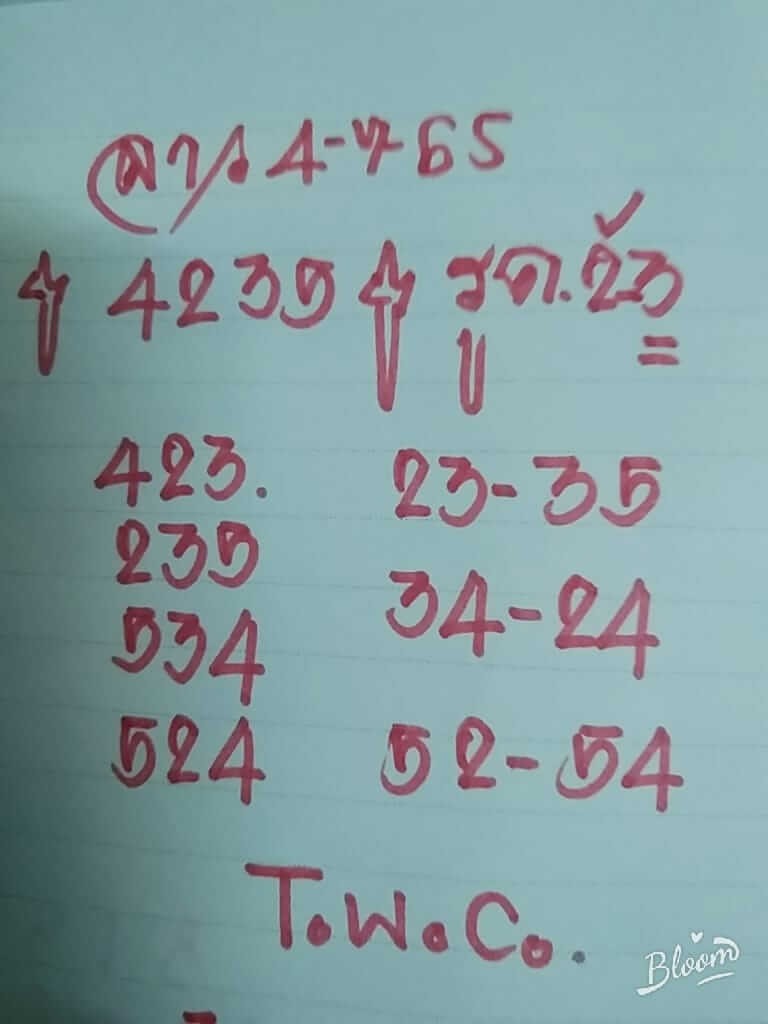 ลาว 4-7-65
4235 รูด.23
423. 23-35
235 34-24
534 52-54
524
T.W.Co.
Bloom